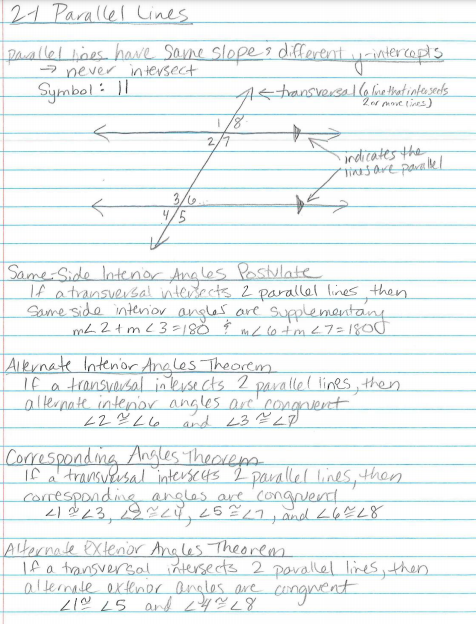 2-1 Parallel Lines
parallel lines have same slope & different y-intercepts
→ never intersect
Symbol: ||
← transversal (a line that intersects
2 or more lines)
1 8
2 7
indicates the
lines are parallel
3 6
4 5
Same-Side Interior Angles Postulate
If a transversal intersects 2 parallel lines, then
same side interior angles are supplementary
m∠2 + m∠3 = 180 & m∠6 + m∠7 = 180
Alternate Interior Angles Theorem
If a transversal intersects 2 parallel lines, then
alternate interior angles are congruent
∠2 ≅ ∠6 and ∠3 ≅ ∠7
Corresponding Angles Theorem
If a transversal intersects 2 parallel lines, then
corresponding angles are congruent
∠1 ≅ ∠3, ∠2 ≅ ∠4, ∠5 ≅ ∠7, and ∠6 ≅ ∠8
Alternate Exterior Angles Theorem
If a transversal intersects 2 parallel lines, then
alternate exterior angles are congruent
∠1 ≅ ∠5 and ∠4 ≅ ∠8